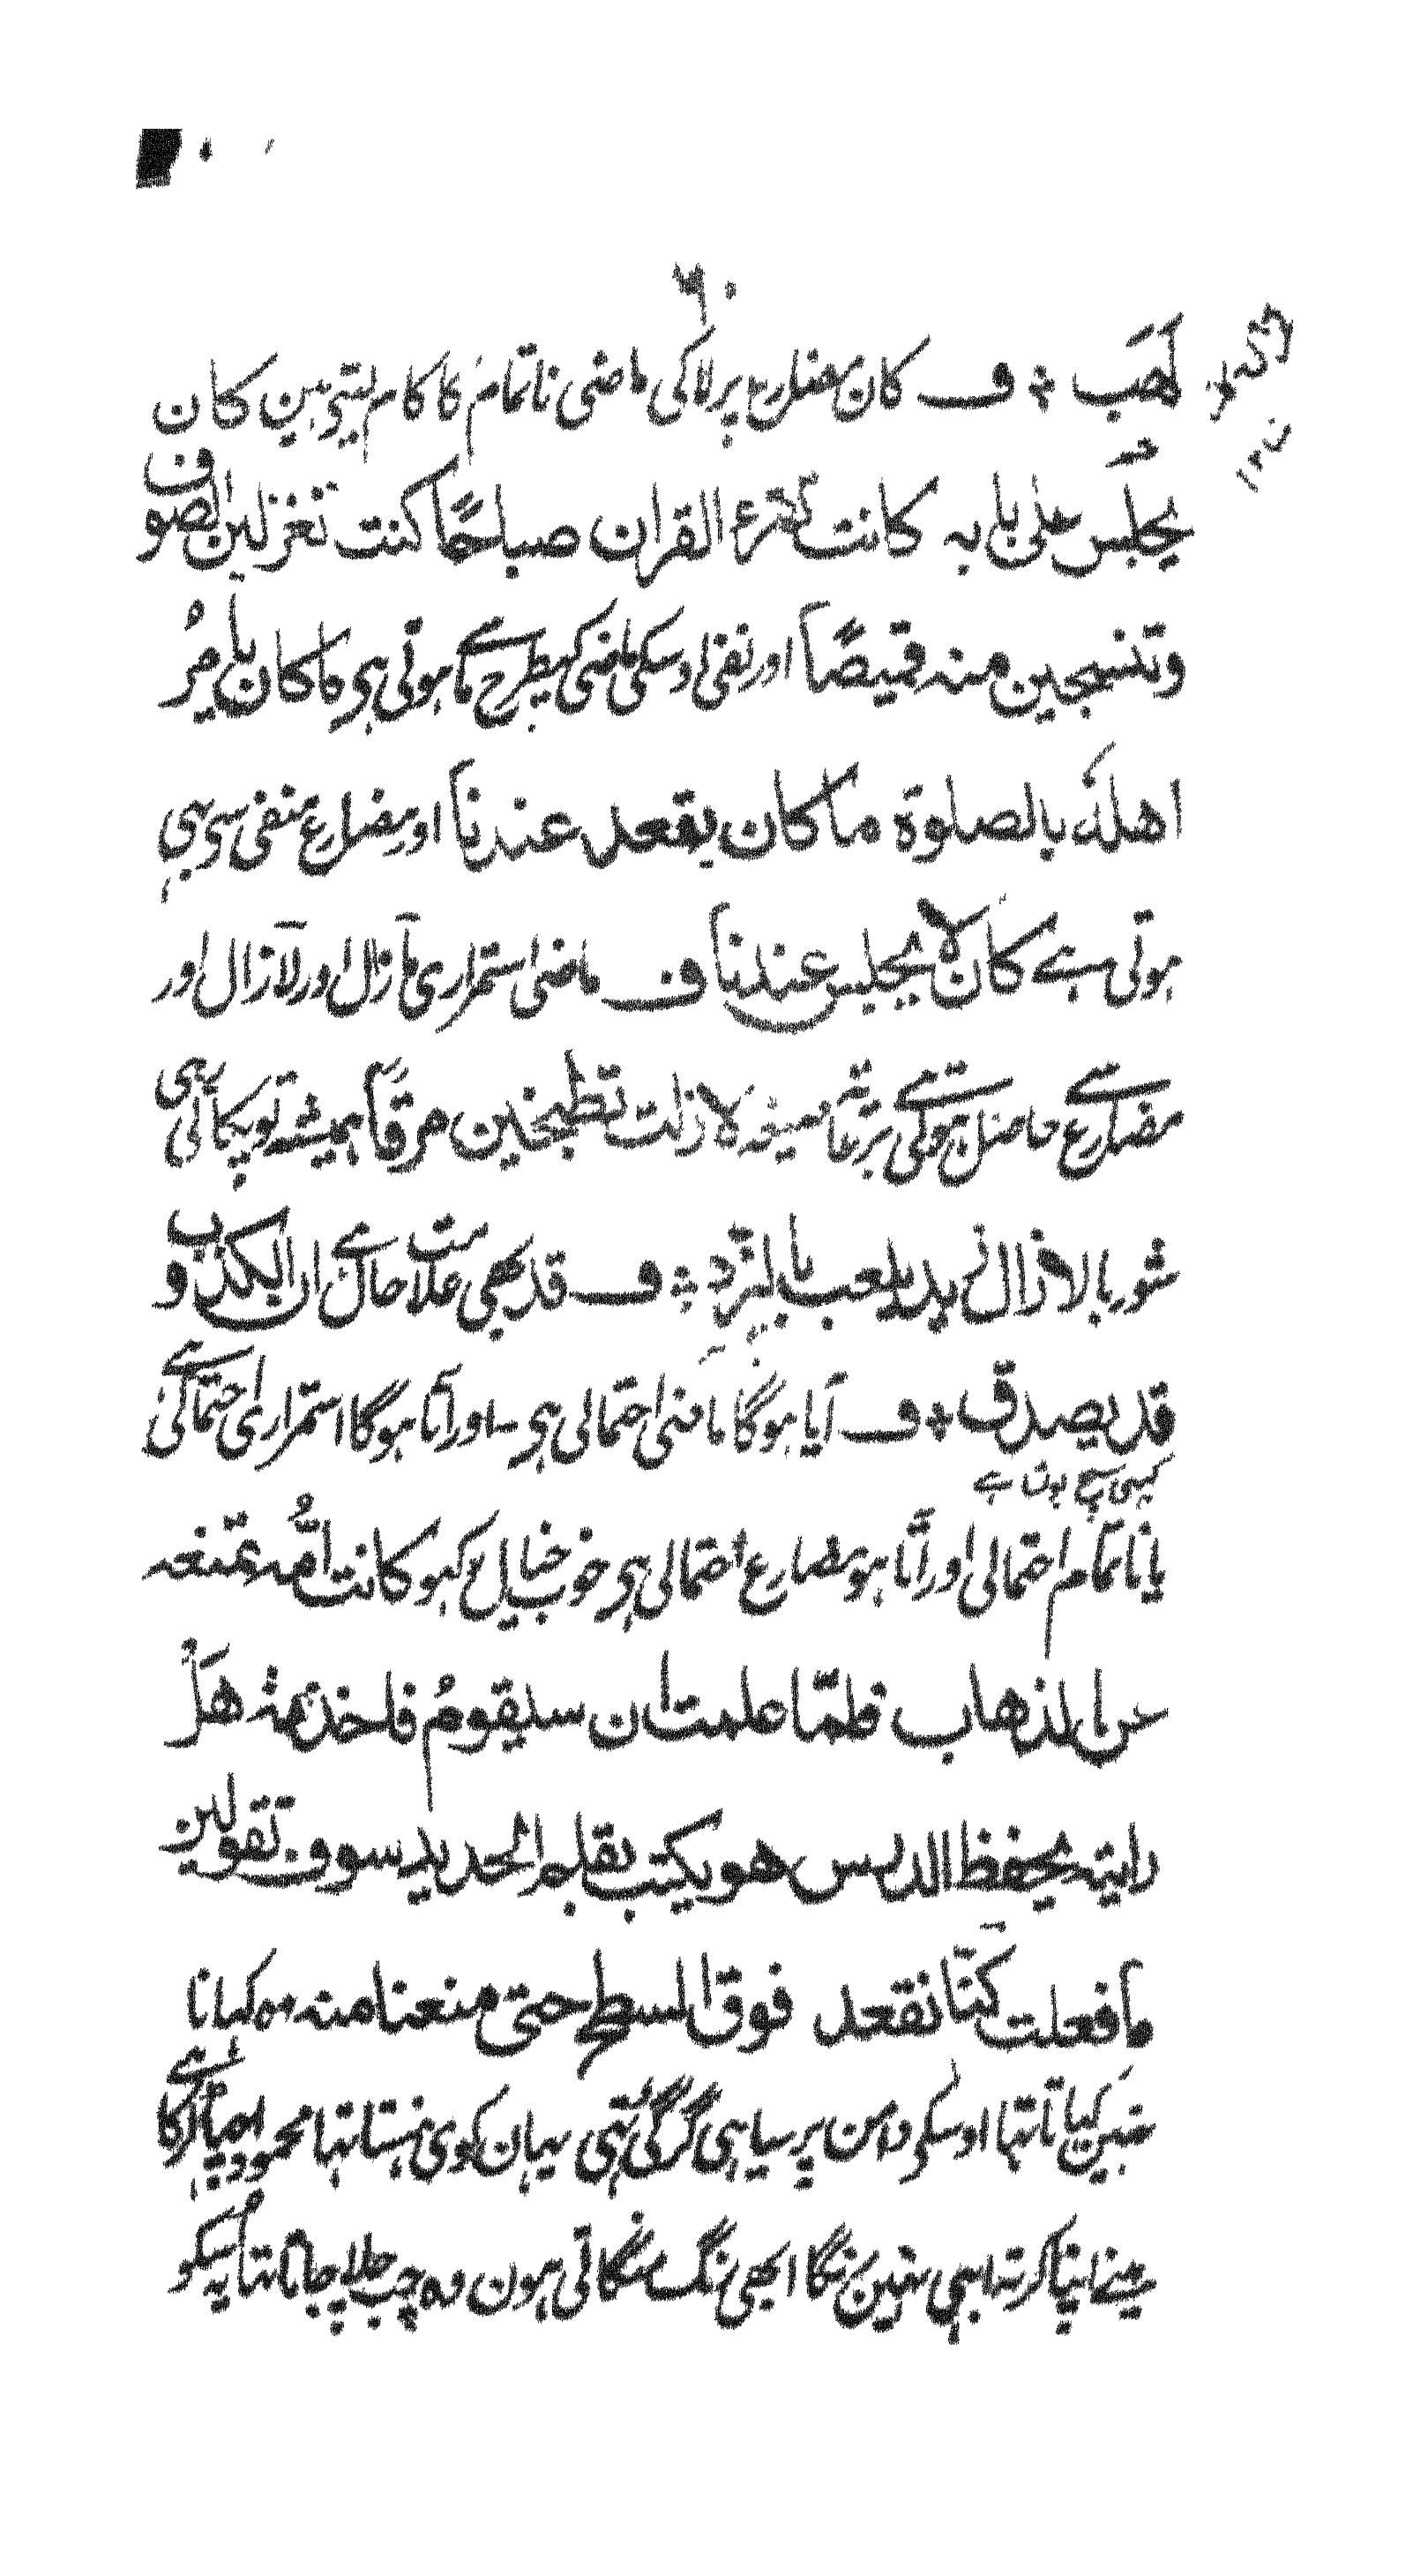 ۶۰
كَهَب ؞ ف کان مضارع پر لاکی ماضی ناتمام کا کام لیتی ہین کان
یجلس علی بابہ کانت تقرء القران صباحًا کنت تغزلین الصوف
وتنسجین منہ قمیصًا اور نفی اوسکی ماضی کیطرح ما سے ہوتی ہی ما کان یامرُ
اھلہ بالصلوۃ ما کان یقعد عندنا اور مضارع منفی سی بہی
ہوتی ہے کان لا یجلس عندنا ف ماضی استمراری ما زال اور لا زال اور
مضارع سے حاصل ہوتی ہی صیغہ لا زلت تطبخین مرقاً ہمیشہ تو پکاتی رہی
شوربا لا زال زید یلعب بالنرد ؞ ف قد بھی علامت حال ہے ان الکذوب
قد یصدق ؞ ف آیا ہوگا ماضی احتمالی ہی - اور آتا ہوگا استمراری احتمالی ہے
کبھی سچ بولتا ہے
یا ناتمام احتمالی اور آتا ہو مضارع احتمالی ہی خوب خیال رکہو کانت امُّہ تمنعہ
عن الذھاب فلمّا علمت ان سیقومُ فاخذتہ ھل
رایتہ یحفظ الدرس ھو یکتب بقلم الحدید سوف تقولین
ما فعلت کنّا نقعد فوق السطح حتی منعنا منہ وہ کہانا
نہین کہاتا تہا اوسکی دامن پر سیاہی گر گئی تہی یہان کوی ہنستا تہا محمود اپنا لڑکا ہے
مینے اپنا کرتہ ابہی نہین رنگا ابھی رنگ منگاتی ہون وہ چپ چلا جاتا تہا